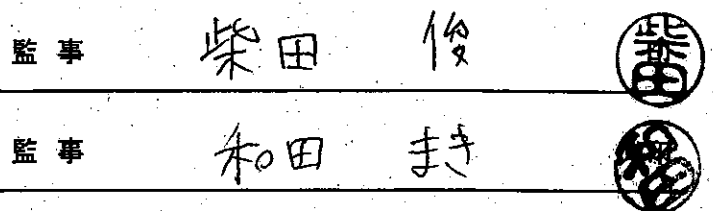 監事 柴田 俊 柴田
監事 和田 まき